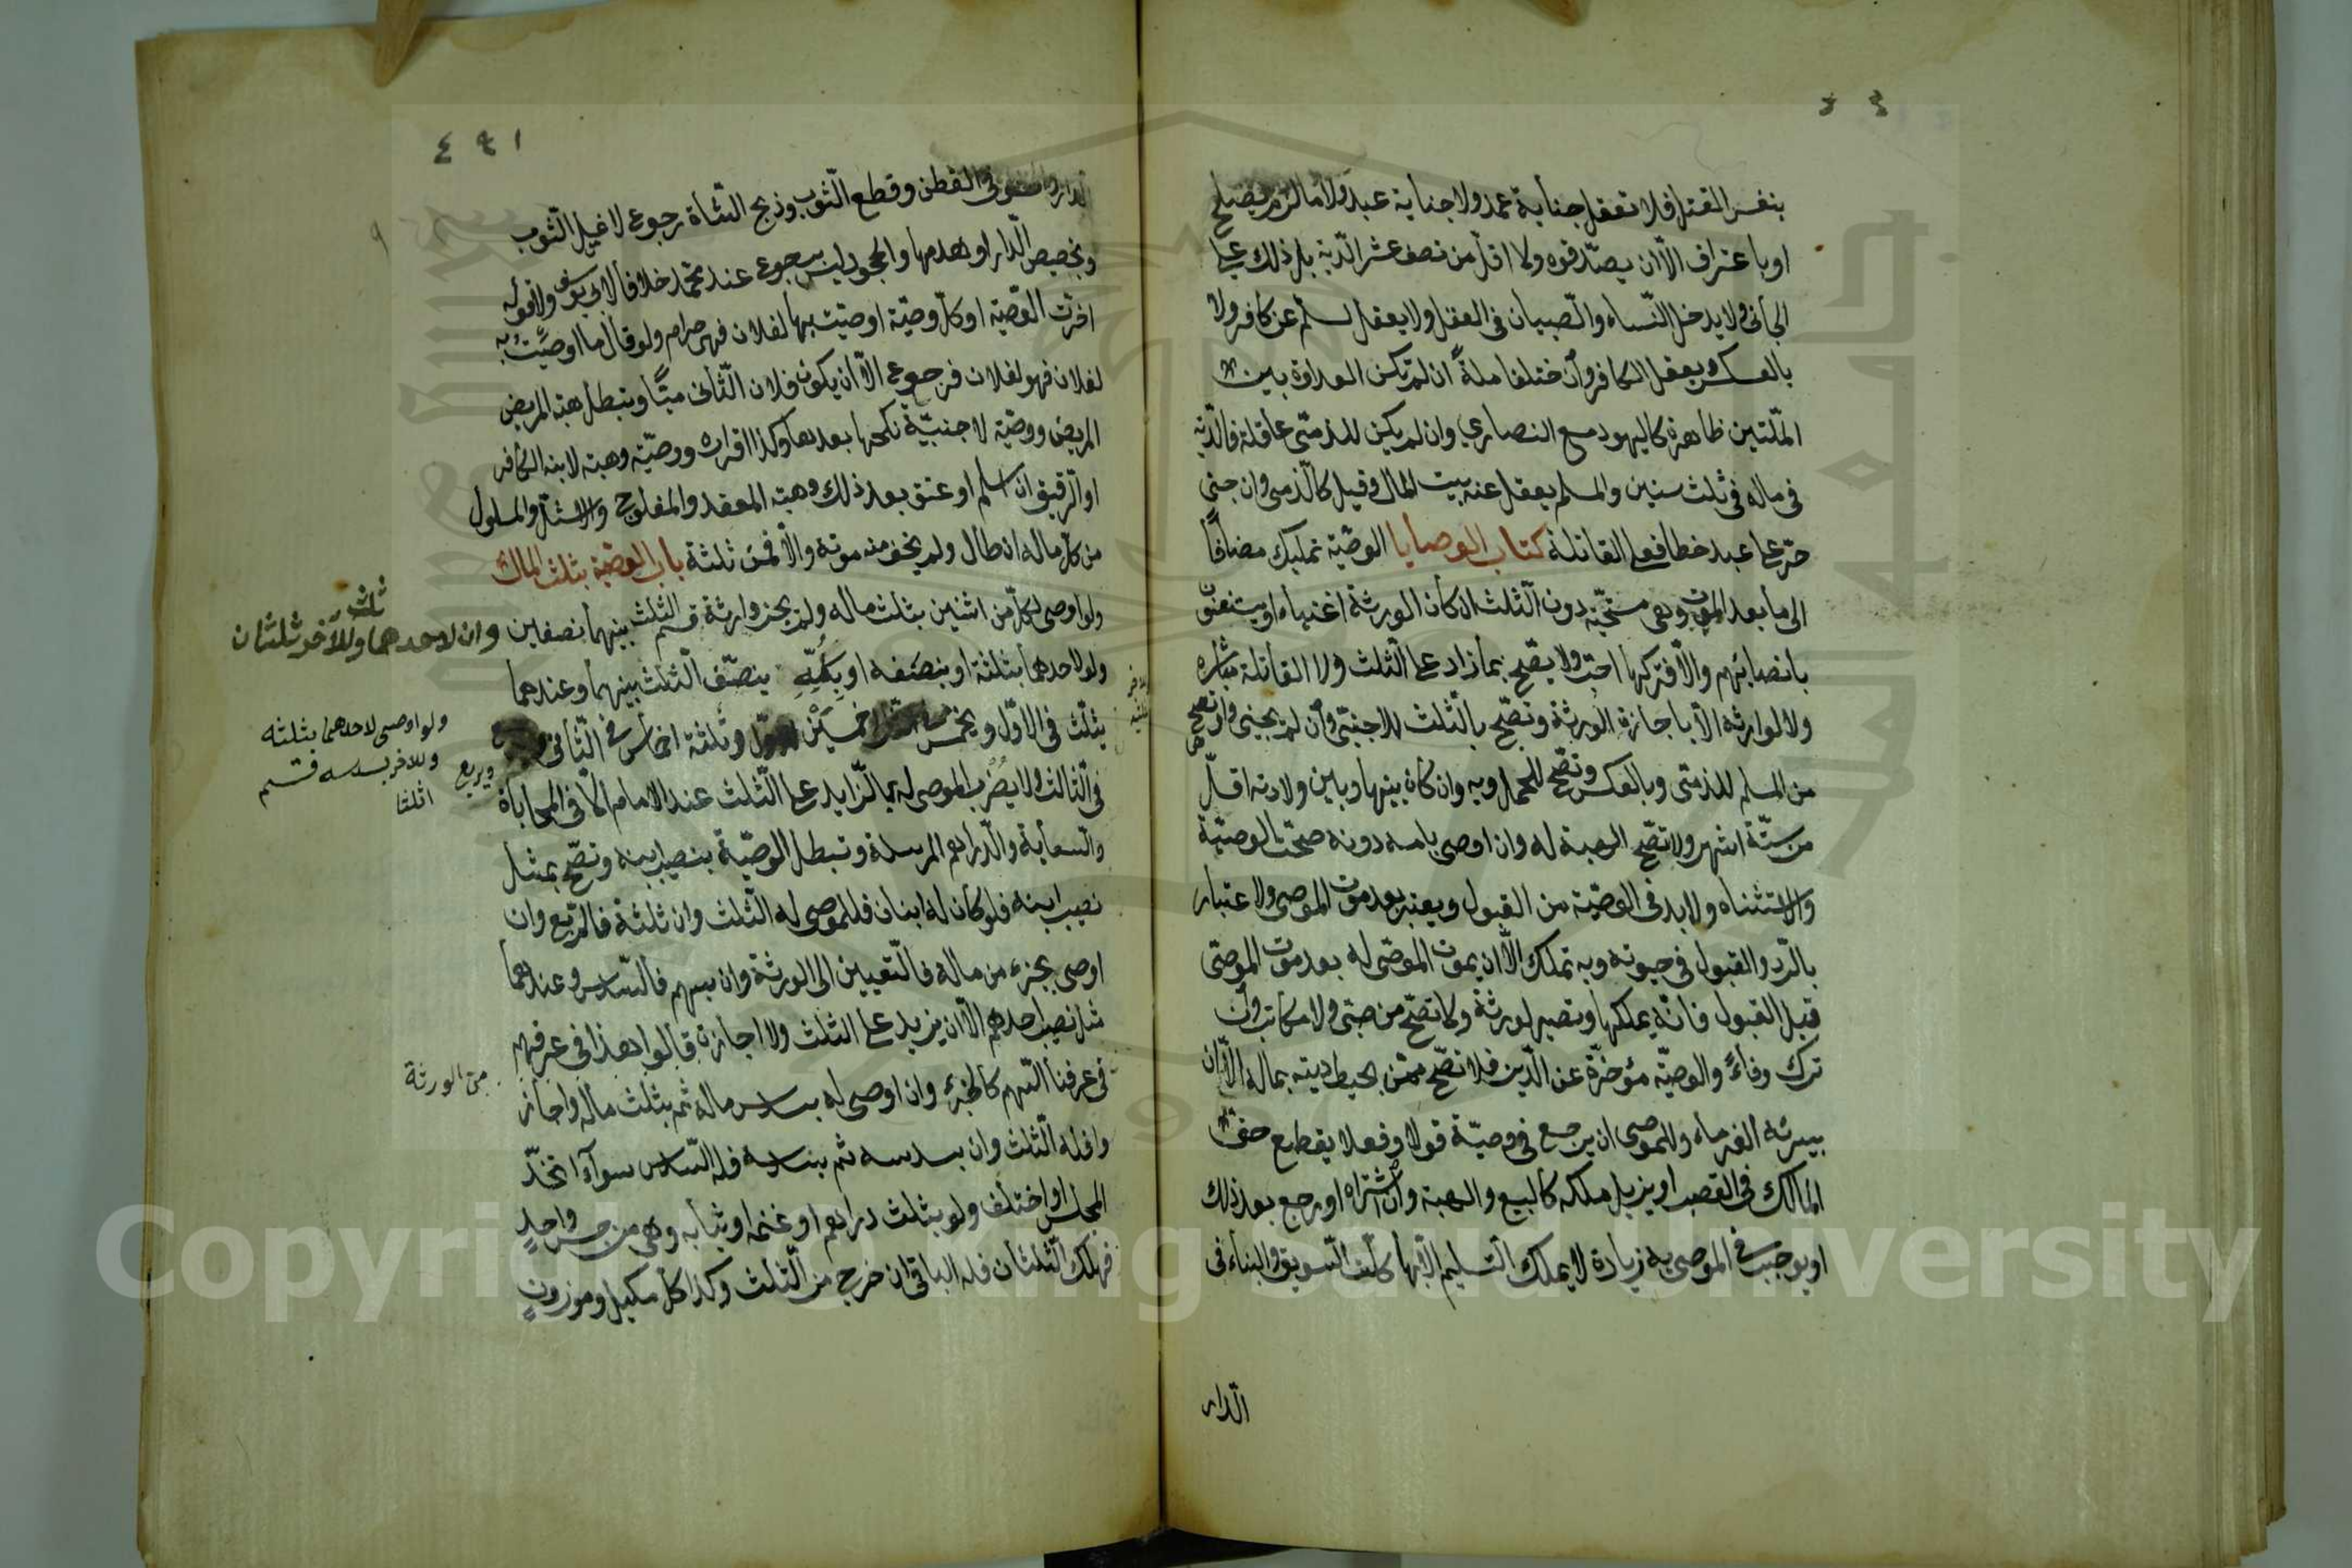 بنفس القتل فلا تعقل جناية عمد ولا جناية عبد ولا ما لزم بصلح
او باعتراف الا ان يصدقوه ولا اقل من نصف عشر الدية بل ذلك على
الجانى ولا يدخل النساء والصبيان فى العقل ولا يعقل مسلم عن كافر ولا
بالعكس ويعقل الكافر وان ختلفا ملة ان لم تكن العداوة بين
الملتين ظاهرة كاليهود مع النصارى وان لم يكن للذمى عاقلة فالدية
فى ماله فى ثلث سنين والمسلم يعقل عنه بيت المال وقيل كالذمى وان جنى
حر على عبد خطا فعلى العاقلة كتاب الوصايا الوصية تمليك مضافا
الى ما بعد الموت وهى مستحبة دون الثلث ان كان الورثة اغنياء او يستغنون
بانصبائهم والا فتركها احب ولا يصح بما زاد على الثلث ولا لقاتله مباشرة
ولا لوارثه الا باجازة الورثة وتصح بالثلث للاجنبى وان لم يجيزوا وتصح
من المسلم للذمى وبالعكس وتصح للحمل وبه وان كان بينها وبين ولادته اقل
من ستة اشهر ولا تصح الهبة له وان اوصى بامه دونه صحت الوصية
والاستثناء ولا بد فى الوصية من القبول ويعتبر بعد موت الموصى ولا عتبار
بالرد والقبول فى حيوته وبه تملك الا ان يموت الموصى له بعد موت الموصى
قبل القبول فانه يملكها وتصير لورثة ولا تصح من صبى ولا مكاتب وان
ترك وفاء والوصية مؤخرة عن الدين فلا تصح ممن يحيط ديته بماله الا ان
يبرئه الغرماء وللموصى ان يرجع فى وصية قولا وفعلا يقطع حق
المالك فى الغصب او يزيل ملكه كالبيع والهبة وان اشتراه او رجع بعد ذلك
او يوجب فى الموصى به زيادة لا يملك التسليم الا بها كلت السويق والبناء فى
الدار
٤٩١
الدار والحشو فى القطن وقطع الثوب وذبح الشاة رجوع لا غسل الثوب
وتجصيص الدار او هدمها والجحود ليس برجوع عند محمد خلافا لابى يوسف ولا قوله
اخرت الوصية او كل وصية اوصيت بها لفلان فهى حرام ولو قال ما اوصيت به
لفلان فهو لفلان فرجوع الا ان يكون فلان الثانى ميتا وتبطل هبة المريض
المريض ووصية لاجنبية نكحها بعدها وكذا اقراره ووصية وهبته لابنه الكافر
او الرقيق ان اسلم او عتق بعد ذلك وهبة المقعد والمفلوج والاشل والمسلول
من كل ماله ان طال ولم يخف منه موته والا فمن ثلثة باب الوصية بثلث المال
ولو اوصى لكل من اثنين بثلث ماله ولم يجز وارثة قسم الثلث بينهما نصفين وان لاحدهما وللآخر ثلثان
ثلث
ولو لاحدهما بثلثة او بنصفه او بكله ينصف الثلث بينهما وعندهما
يثلث فى الاول ويخمس خمسين وثلثة اخماس فى الثانى
ويربع
ولو اوصى لاحدهما بثلثه
وللاخر بسدسه قسم
اثلثا
فى الثالث ولا يضرب الموصى له بما الزايد على الثلث عند الامام الا فى المحاباة
والسعاية والدراهم المرسلة وتبطل الوصية بنصيب ابنه وتصح بمثل
نصيب ابنه فلو كان له ابنان فللموصى له الثلث وان ثلثة فالربع وان
اوصى بجزء من ماله فالتعيين الى الورثة وان بسهم فالسدس وعندهما
مثل نصيب احدهم الا ان يزيد على الثلث ولا اجازة قالوا هذا فى عرفهم
فى عرفنا السهم كالجزء وان اوصى له بسدس ماله ثم بثلث ماله واجاز
من الورثة
وا فله الثلث وان بسدسه ثم بسدسه فله السدس سواء اتحد
المجلس او اختلف ولو بثلث دراهم او غنمه او ثيابه وهى من جنس واحد
فهلك الثلثان فله الباقى ان خرج من الثلث وكذا كل مكيل وموزون
Copyright © King Saud University